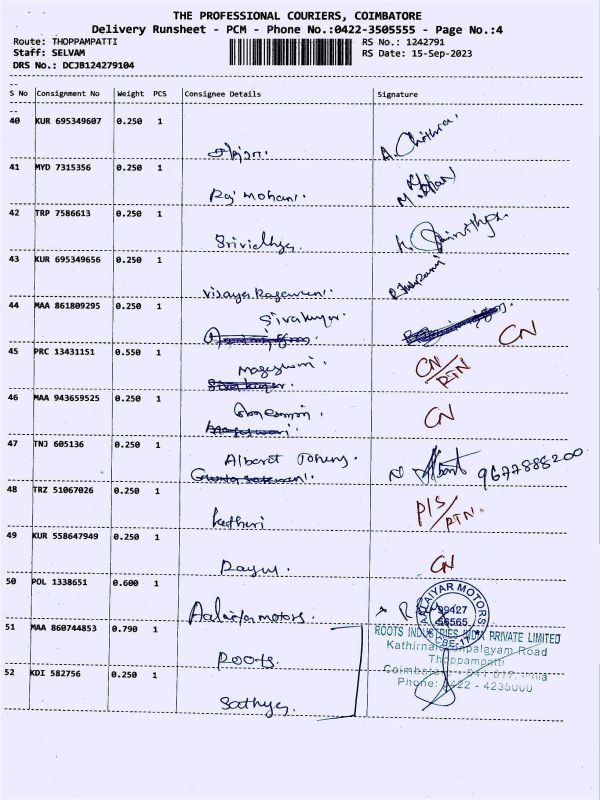 THE PROFESSIONAL COURIERS, COIMBATORE
Delivery Runsheet - PCM - Phone No.:0422-3505555 - Page No.:4
Route: THOPPAMPATTI RS No.: 1242791
Staff: SELVAM RS Date: 15-Sep-2023
DRS No.: DCJB124279104
S No Consignment No Weight PCS Consignee Details Signature
40 KUR 695349607 0.250 1
A. Chithra.
41 MYD 7315356 0.250 1
Raj mohan.
42 TRP 7586613 0.250 1
Srividhya
43 KUR 695349656 0.250 1
44 MAA 861809295 0.250 1
Sivakumar. CN
45 PRC 13431151 0.550 1
Mageswari. CN/RTN
46 MAA 943659525 0.250 1
CN
47 TNJ 605136 0.250 1
Albaret 9677888200
48 TRZ 51067026 0.250 1
P/S/RTN.
49 KUR 558647949 0.250 1
CN
50 POL 1338651 0.600 1
motors
99427
56565
CBE-17
51 MAA 860744853 0.790 1
ROOTS INDUSTRIES INDIA PRIVATE LIMITED
Roots.
Thoppampatti
52 KDI 582756 0.250 1
Phone: 0422 - 4235000
Sathya.